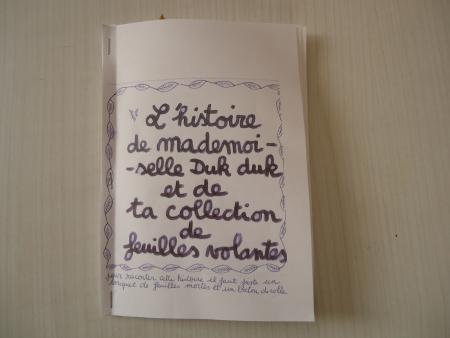 L'histoire
de mademoi-
-selle Duk duk
et de
ta collection
de
feuilles volantes
pour raconter cette histoire il faut juste un
bouquet de feuilles mortes et un bâton de colle